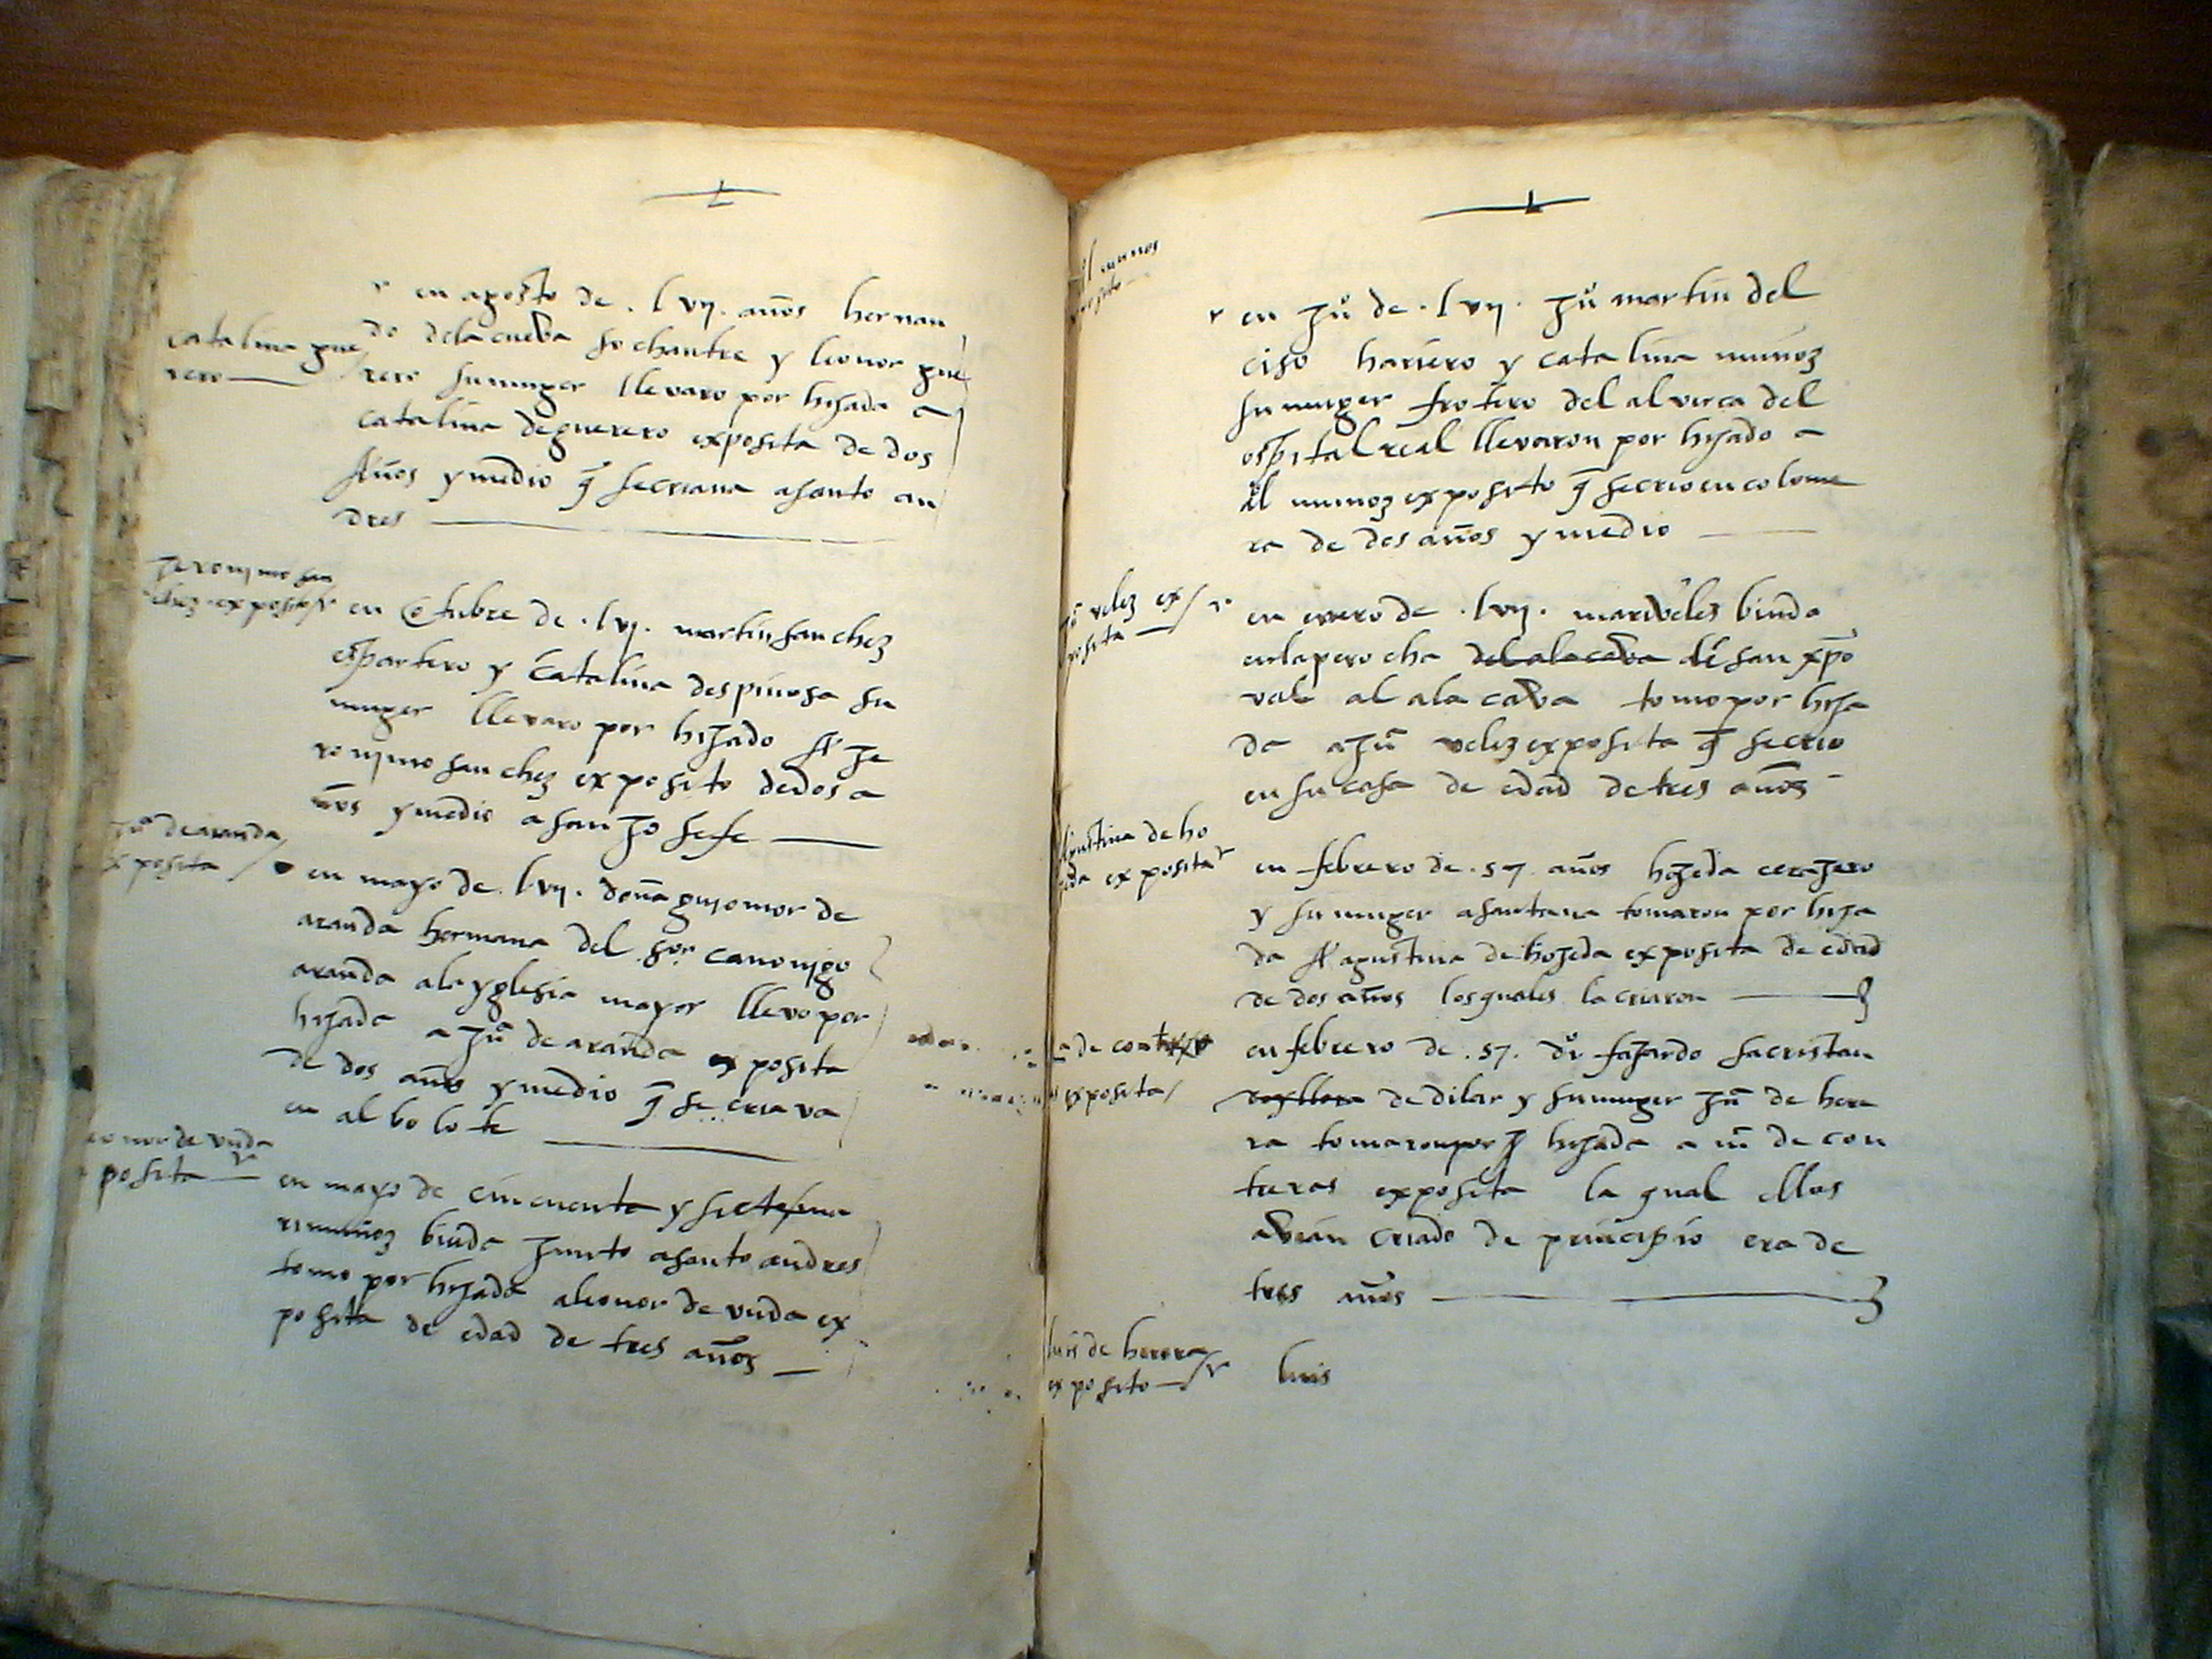 en agosto de . lvij . años hernan
catalina gue
rero
do dela cueba sochantre y leonor gue
rero su muger llevaro por hijada a
catalina de guerero exposita de dos
Años y medio q̃ se criava a santo an
dres
jeronimo san
chez exposito
en Otubre de . lvj . martin sanchez
espartero y Catalina despinosa su
muger llevaro por hijado A je
ronjmo sanchez exposito de dos a
ños y medio a san josefe
juª de aranda
exposita
en mayo de . lvij . doña gujomor de
aranda hermana del sor canonjgo
aranda ala yglesia mayor llevo por
hijada a juª de aranda exposita
de dos años y medio q̃ se criava
en albolote
leonor de vnda
posita
en mayo de cincuenta y siete ma
ri muñoz biuda junto a santo andres
tomo por hijada a leonor de vnda ex
posita de edad de tres años
en juº de . lvij . juº martin del
ciso hariero y catalina munoz
su muger frotero del alverca del
ospital real llevaron por hijado a
munoz exposito q̃ se crio en colome
ra de dos años y medio
juª velez ex
posita
en enero de . lvij . mari velez biuda
en la perocha del alacaba de san xp̃o
val al alacaba tomo por hija
da a juª velez exposita q̃ se crio
en su casa de edad de tres años
Agustina de ho
jeda exposita
en febrero de . 57 años hojeda cerajero
y su muger a santana tomaron por hija
da A agustina de hojeda exposita de edad
de dos años los quales la criaron
de contreras
exposita
en febrero de . 57 . dº fajardo sacristan
de dilar y su muger juª de here
ra tomaron por hijada a mª de con
treras exposita la qual ellos
abian criado de principio era de
tres años
luis de herera
exposito
luis